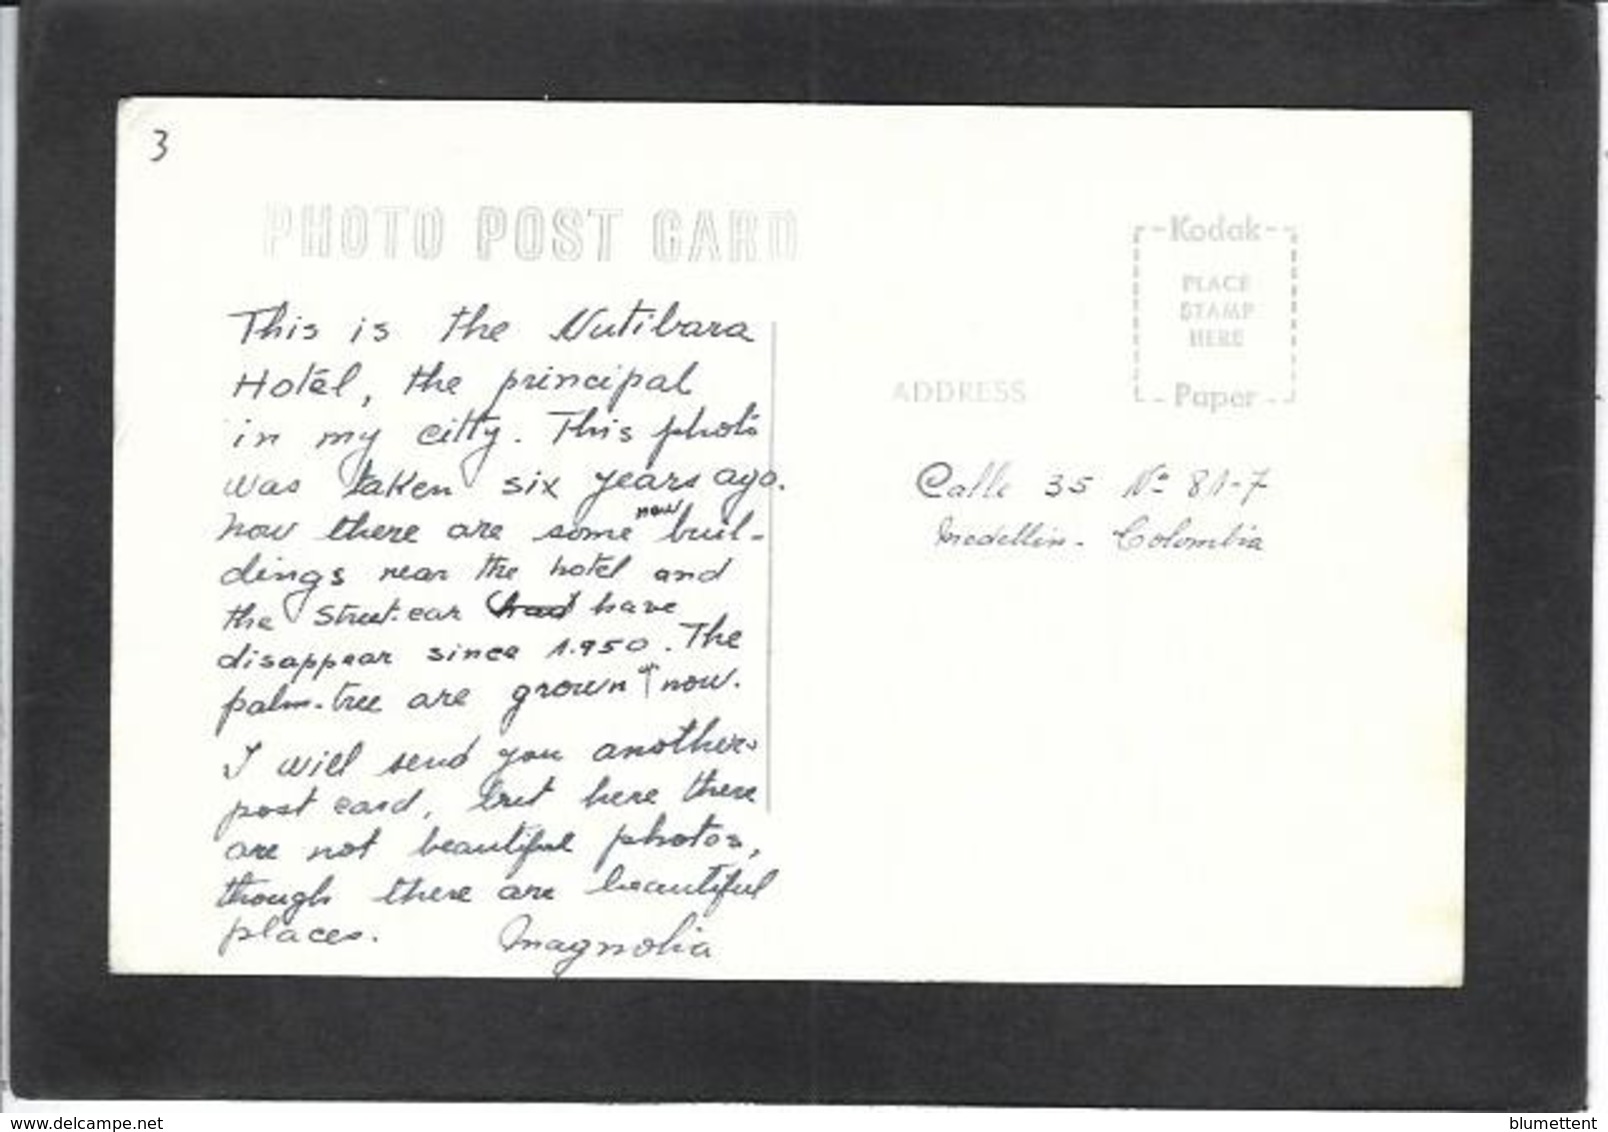 3
PHOTO POST CARD
Kodak
PLACE
STAMP
HERE
Paper
ADDRESS
This is the Nutibara
Hotel, the principal
in my citty. This photo
was taken six years ago.
now there are some new buil-
dings near the hotel and
the street-car had have
disappear since 1.950. The
palm-tree are grown now.
I will send you another
post card, but here there
are not beautiful photos,
though there are beautiful
places. Magnolia
Calle 35 Nº 81-7
Medellin - Colombia
www.delcampe.net
blumettent